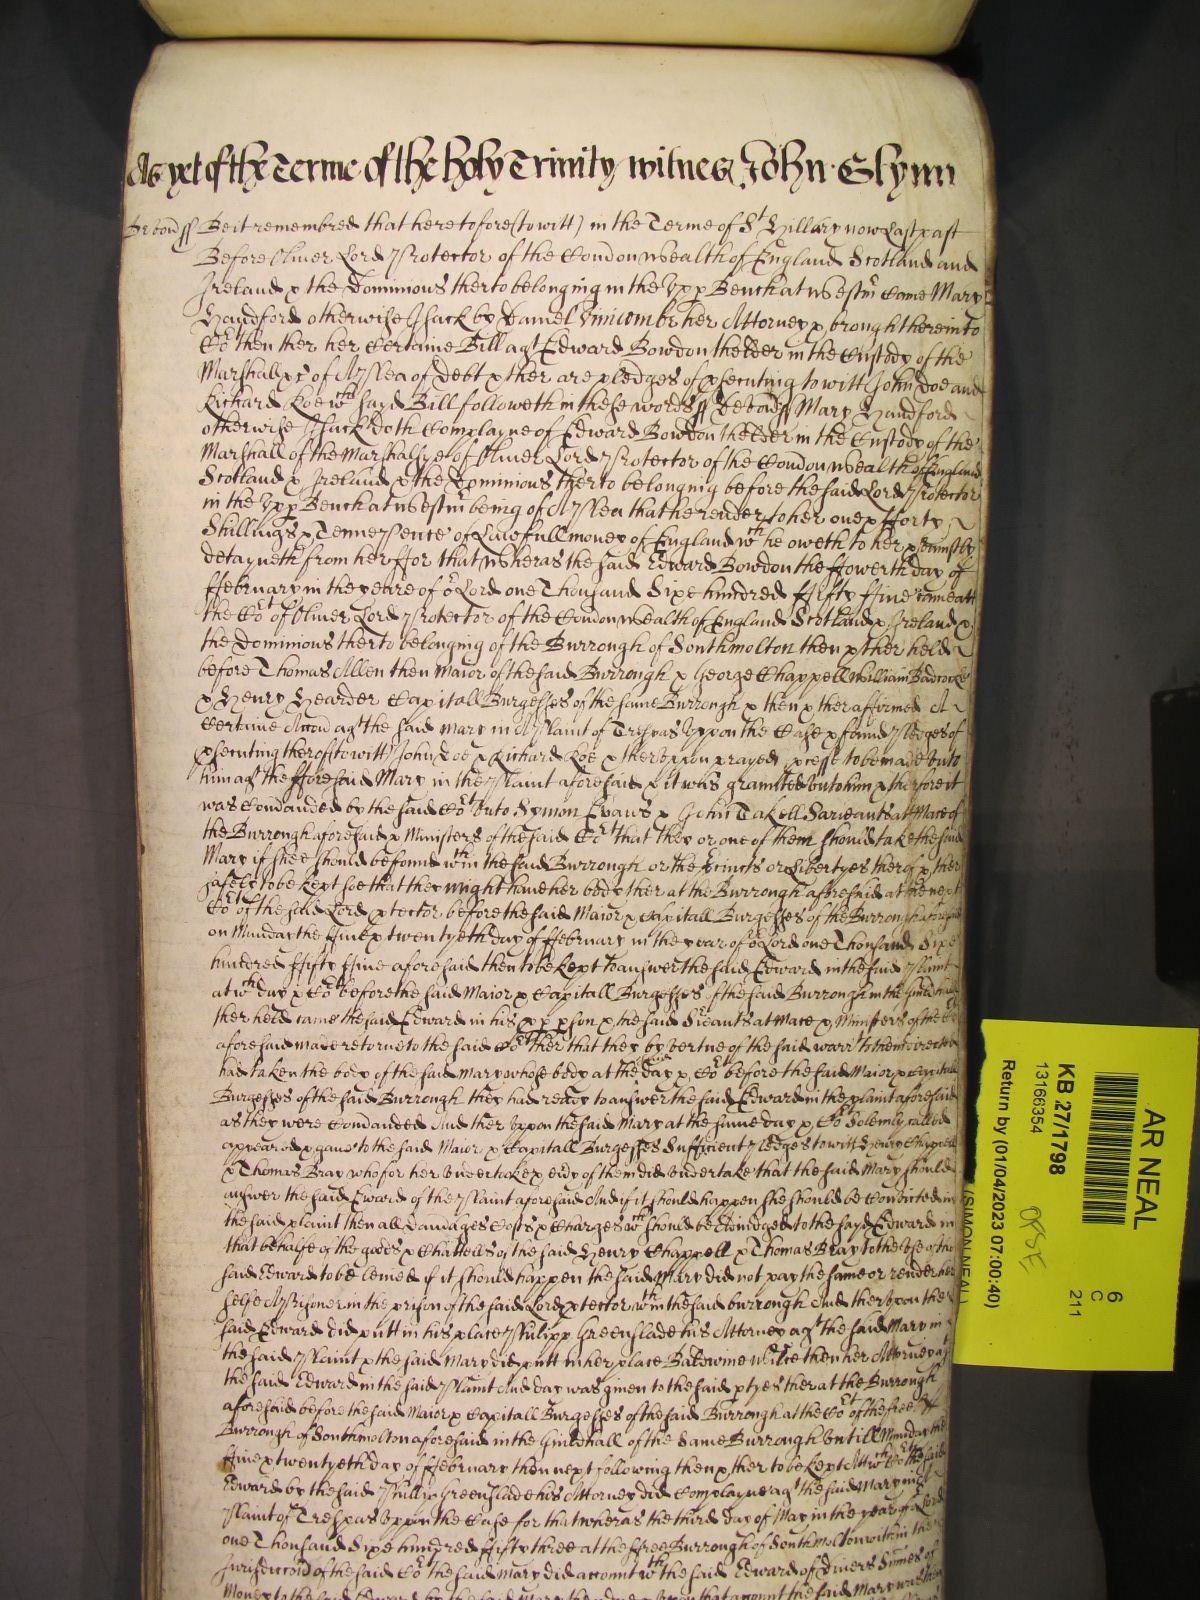 As yet of the Terme of the holy Trinity witnes John Glynn
Devon ss Be it remembred that heretofore (to witt) in the Terme of St Hillary now Last past
Before Oliver Lord Protector of the Comonwealth of England Scotland and
Ireland & the Dominions therto belonging in the Upp Bench at Westmr Came Mary
Handford otherwise Isack by Daniel Vinicombe her Attorney & brought here into
Cort then ther her Certaine Bill agt Edward Bowdon thelder in the Custody of the
Marshall &c of A Plea of Debt & ther are pledges of psecuting to witt John Doe and
Richard Roe wch sayd Bill followeth in these words ss Devon ss Mary Handford
otherwise Isack doth Complayne of Edward Bowdon thelder in the Custody of the
Marshall of the Marshallsye of Oliver Lord Protector of the Comonwealth of England
Scotland & Ireland & the Dominions therto belonging before the said Lord Protector
in the Upp Bench at Westmr being of A Plea that he render to her one & fforty
Shillings & Tenne Pence of Lawfull money of England wch he oweth to her & uniustly
detayneth from her ffor that wheras the said Edward Bowdon the ffowerth day of
ffebruary in the yeare of or Lord one Thousand Sixe hundred ffifty ffive came att
the Cort of Oliver Lord Protector of the Comonwealth of England Scotland & Ireland &
the Dominions therto belonging of the Burrough of Southmolton then & ther held
before Thomas Allen then Maior of the said Burrough & George Chappell William Badcocke
& Henry Hearder Capitall Burgesses of the same Burrough & then & ther affirmed A
Certaine Accon agt the said Mary in A Plaint of Trespas Uppon the Case & found Pledges of
psecuting therof (to witt) John Doe & Richard Roe & theruppon prayed pcesse to be made unto
him agt the fforesaid Mary in the Plaint aforesaid & it was graunted unto him & therfore it
was Comanded by the said Cort unto Symon Evans & John Takell Sarieants at Mace of
the Burrough aforesaid & Ministers of the said Cort that they or one of them should take the said
Mary if shee should be found wthin the said Burrough or the precincts or Libertyes therof & ther
safely to be kept soe that they might have her body ther at the Burrough aforesaid at the next
Cort of the said Lord ptector before the said Maior & Capitall Burgesses of the Burrough aforesaid
on Munday the ffive & twentyeth day of ffebruary in the year of or Lord one Thousand Sixe
hundred ffifty ffive aforesaid then to be kept to answer the said Edward in the said Plaint
at wch day & Cort before the said Maior & Capitall Burgesses of the said Burrough in the Guildhall
ther held came the said Edward in his pp pson & the said Srieants at Mace & Ministers of the Cort
aforesaid made returne to the said Cort ther that they by vertue of the said warrt to them directed
had taken the body of the said Mary whose body at the said day & Cort before the said Maior & Capitall
Burgesses of the said Burrough they had ready to answer the said Edward in the plaint aforesaid
as they were Comanded And ther Uppon the said Mary at the same day & Cort Solemly called
appeared & gave to the said Maior & Capitall Burgesses Sufficient Pledges to witt Henry Chappell
& Thomas Bray who for her undertake & eich of them did undertake that the said Mary should
answer the said Edward of the Plaint aforesaid And if it should happen she should be Convicted in
the said plaint then all Damages Costs & Charges wch should be Adiudged to the sayd Edward in
that behalfe of the goods & Chattells of the said Henry Chappell & Thomas Bray to the Use of the
said Edward to be levied if it should happen the said Mary did not pay the same or render her
selfe A Prisoner in the prison of the said Lord ptector wthin the said burrough And ther Upon the
said Edward did putt in his place Phillipp Greenslade his Attorney agt the said Mary in
the said Plaint & the said Mary did putt in her place Baldwine then her Attorney agt
the said Edward in the said Plaint And day was given to the said ptyes ther at the Burrough
aforesaid before the said Maior & Capitall Burgesses of the said Burrough at the Cort of the free
Burrough of Southmolton aforesaid in the Guildhall of the same Burrough untill Munday the
ffive & twentyeth day of ffebruary then next following then & ther to be kept Att wch Cort the said
Edward by the said Phillip Greenslade his Attorney did Complayne agt the said Mary in A
Plaint of Trespas Uppon the Case for that wheras the third day of May in the year of or Lord
one Thousand Sixe hundred ffifty three at the ffree Burrough of Southmolton within the
Jurisdiccon of the said Cort the said Mary did account wth the said Edward of Divers Summes of
Money to the said Edward by the said Mary upon that account the said Mary was then
AR NEAL
(SIMON NEAL)
KB 27/1798
13166354
Return by (01/04/2023 07:00:40)
6
C
211